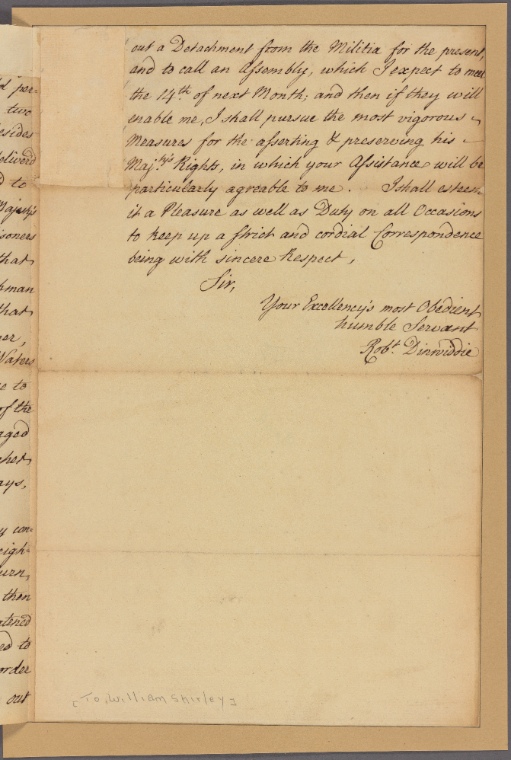 d per-
two
esides
deliverd
d to
Majesty's
isoners
that
pman
that
er,
Waters
e to
of the
aged
ched
ays,
y con-
eigh-
urn,
then
tened
ed to
order
out
out a Detachment from the Militia for the present,
and to call an Assembly, which I expect to meet
the 14th of next Month; and then if they will
enable me, I shall pursue the most vigorous
Measures for the asserting & preserving his
Maj:ty's Rights, in which your Assistance will be
particularly agreable to me. I shall esteem
it a Pleasure as well as Duty on all Occasions
to keep up a strict and cordial Correspondence
being with sincere Respect,
Sir,
Your Excellency's most Obedient
humble Servant
Robt. Dinwiddie
[To, William Shirley]